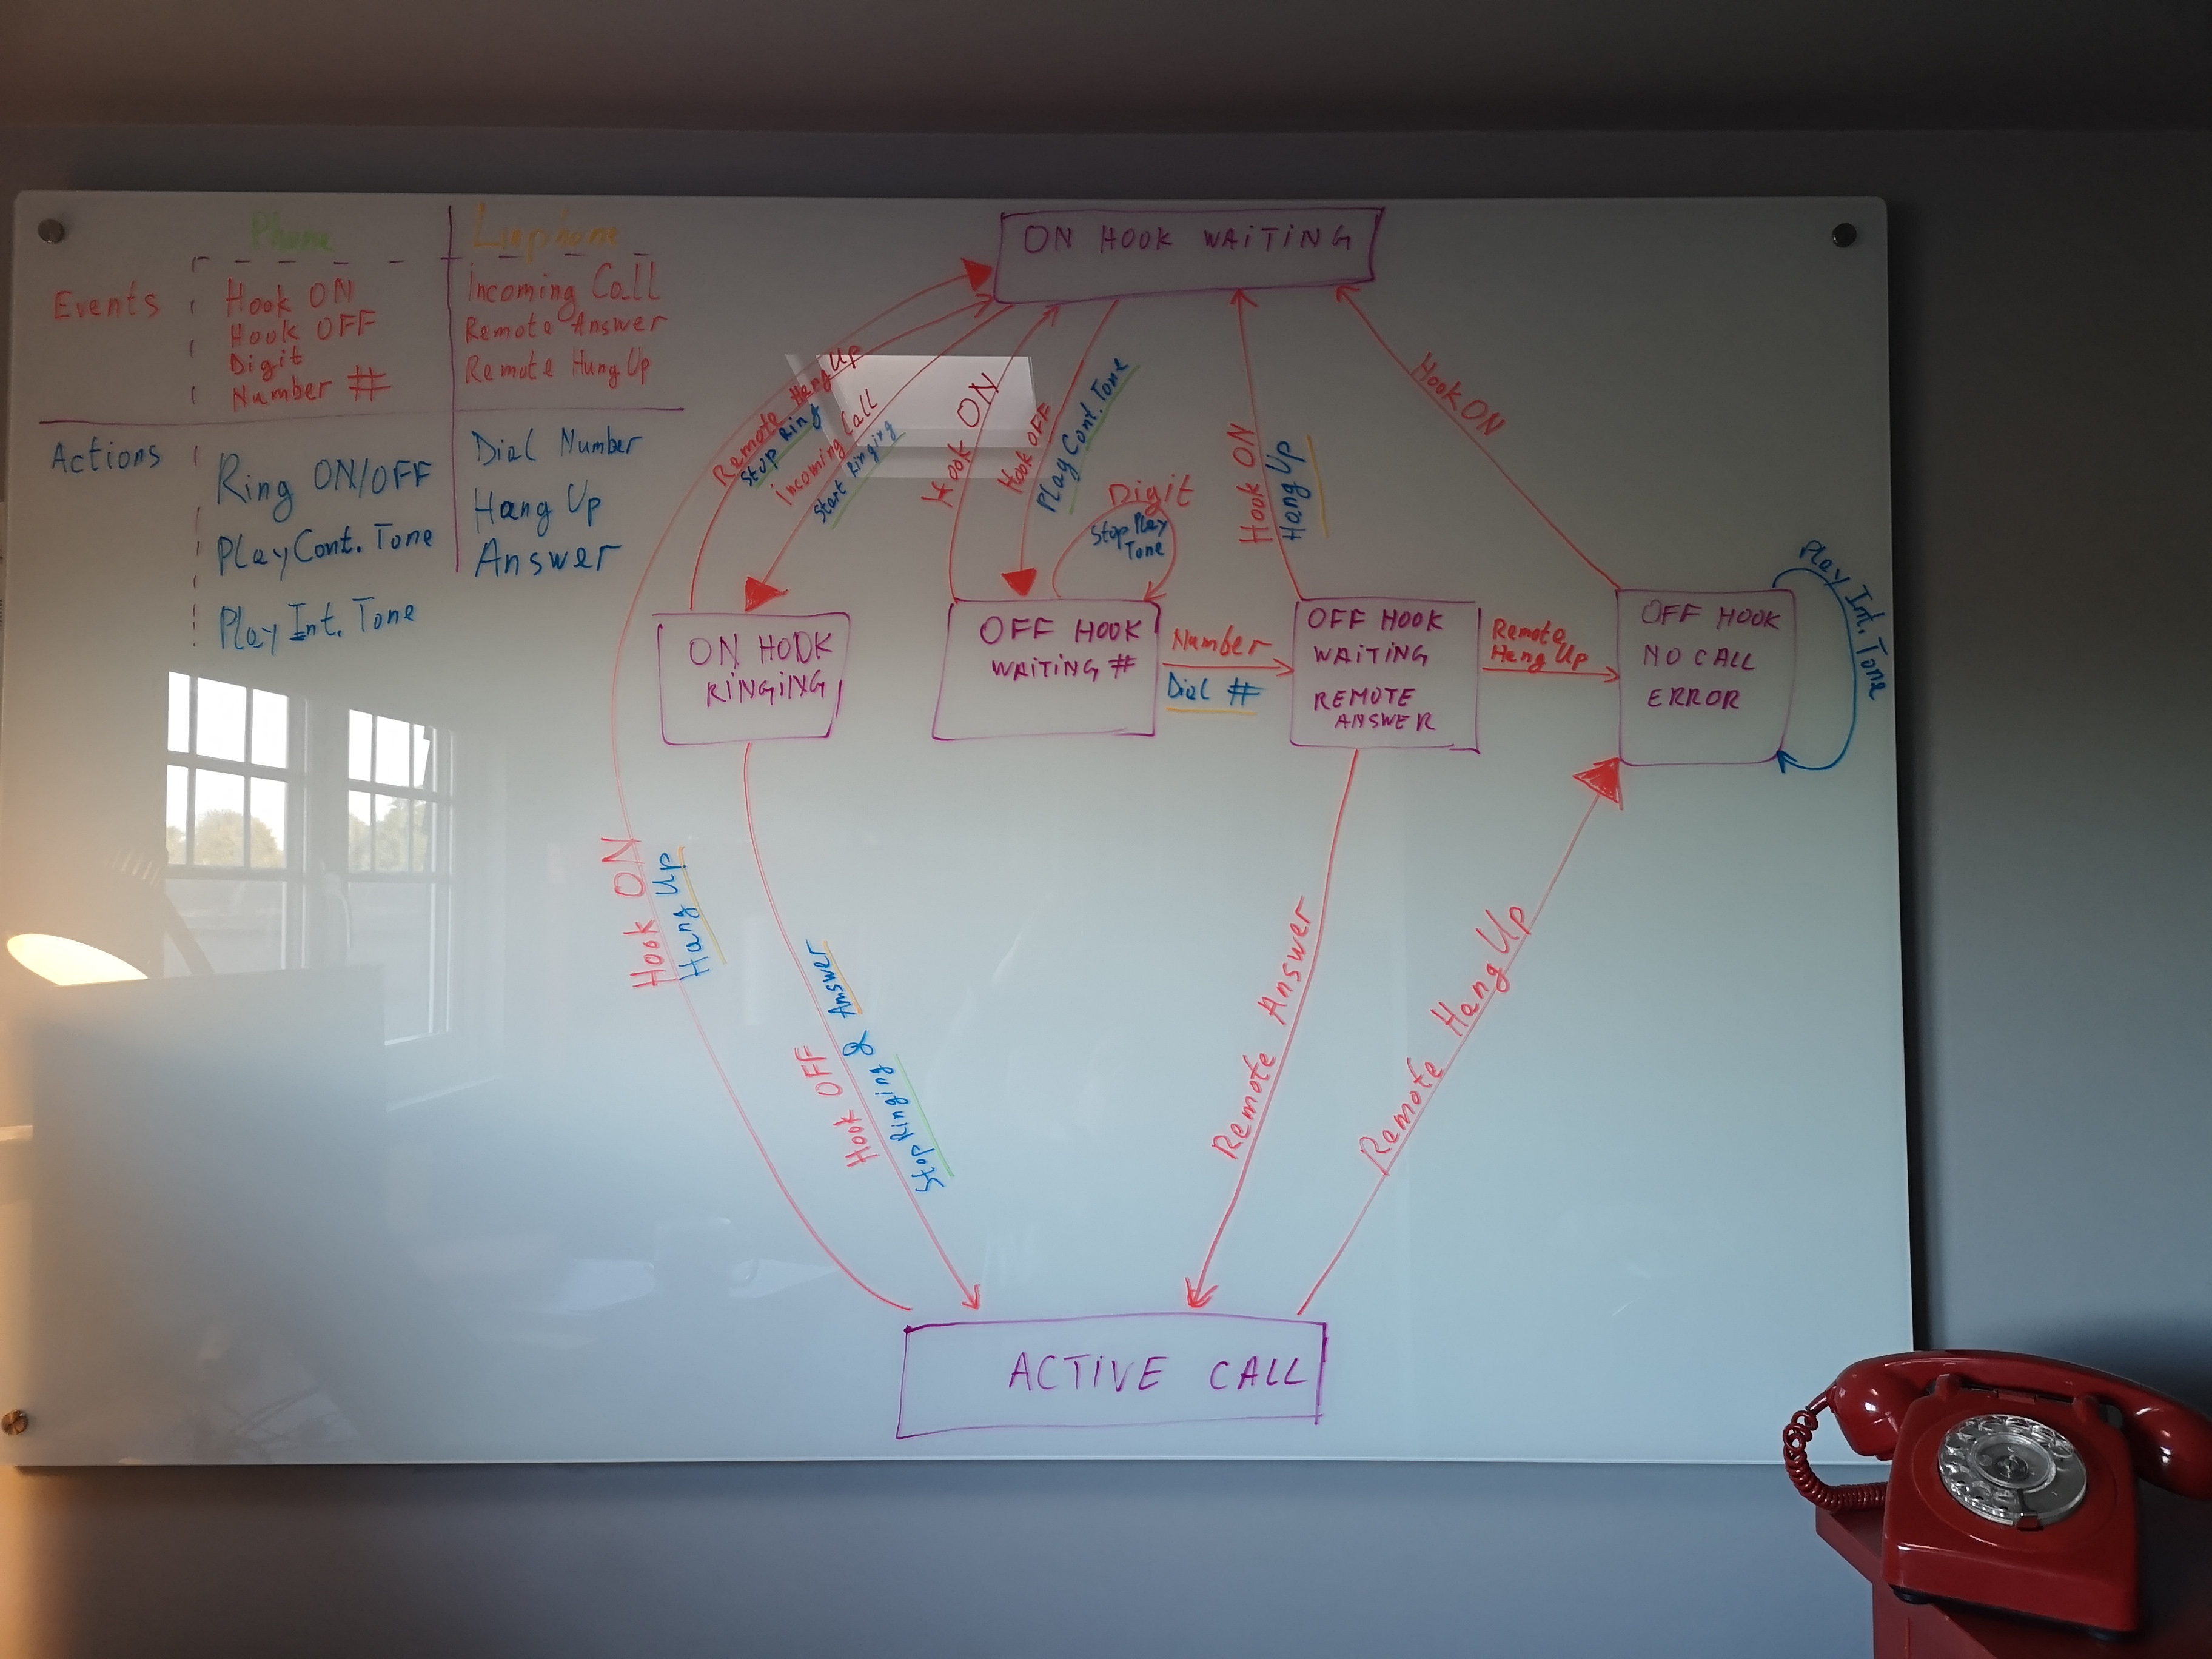 Phone
Linphone
Events
Hook ON
Hook OFF
Digit
Number #
Incoming Call
Remote Answer
Remote Hung Up
Actions
Ring ON/OFF
Play Cont. Tone
Play Int. Tone
Dial Number
Hang Up
Answer
ON HOOK WAITING
Remote Hang Up
Stop Ring
Incoming Call
Start Ringing
Hook ON
Hook OFF
Play Cont. Tone
Digit
Stop Play
Tone
Hook ON
Hang Up
Hook ON
Play Int. Tone
ON HOOK
RINGING
OFF HOOK
WAITING #
Number
Dial #
OFF HOOK
WAITING
REMOTE
ANSWER
Remote
Hang Up
OFF HOOK
NO CALL
ERROR
Hook ON
Hang Up
Hook OFF
Stop Ringing & Answer
Remote Answer
Remote Hang Up
ACTIVE CALL